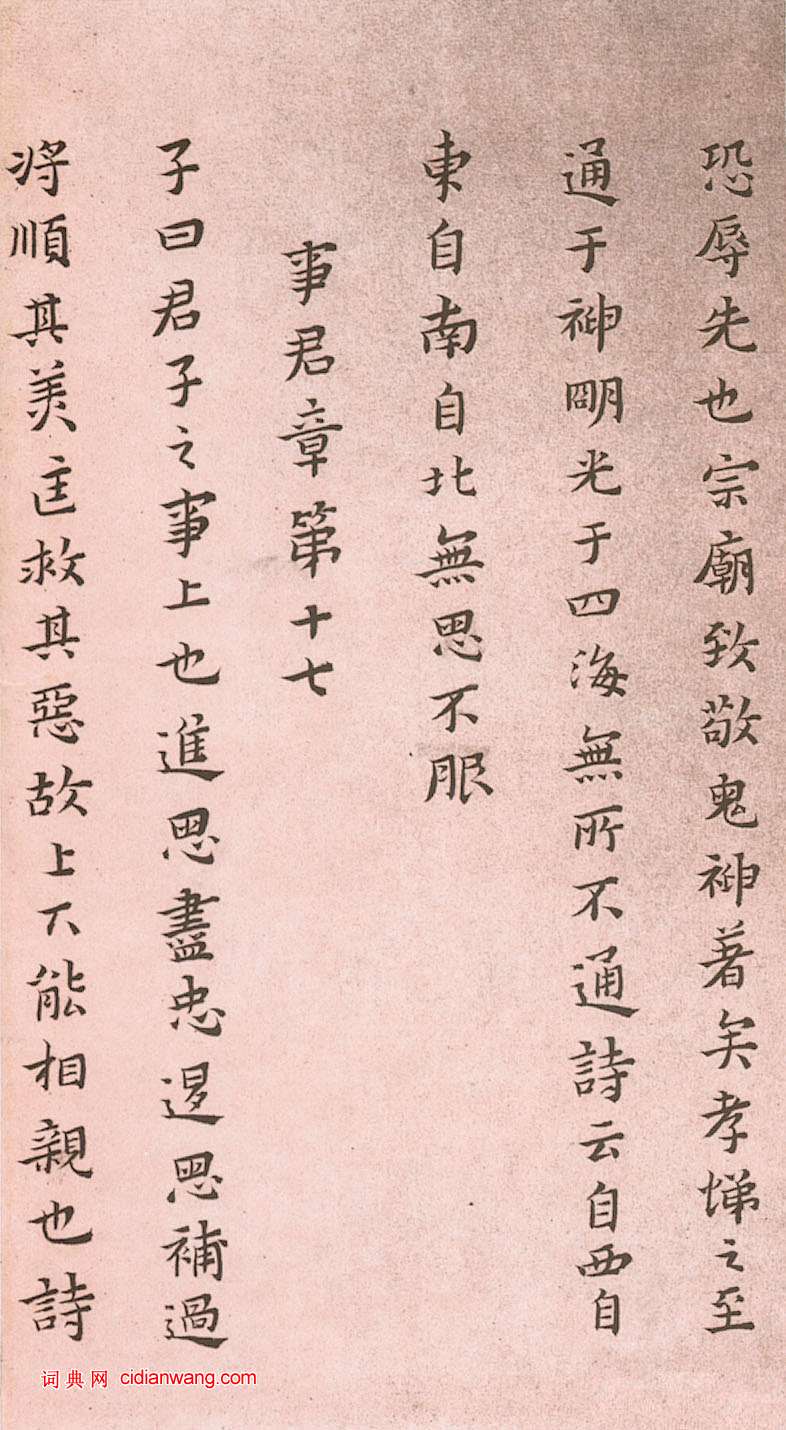 恐辱先也宗廟致敬鬼神著矣孝悌之至
通于神明光于四海無所不通詩云自西自
東自南自北無思不服
事君章第十七
子曰君子之事上也進思盡忠退思補過
將順其美匡救其惡故上下能相親也詩
词典网 cidianwang.com